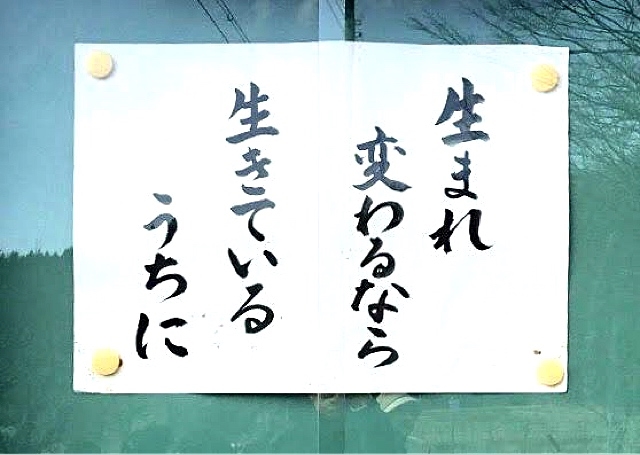 生まれ
変わるなら
生きている
うちに